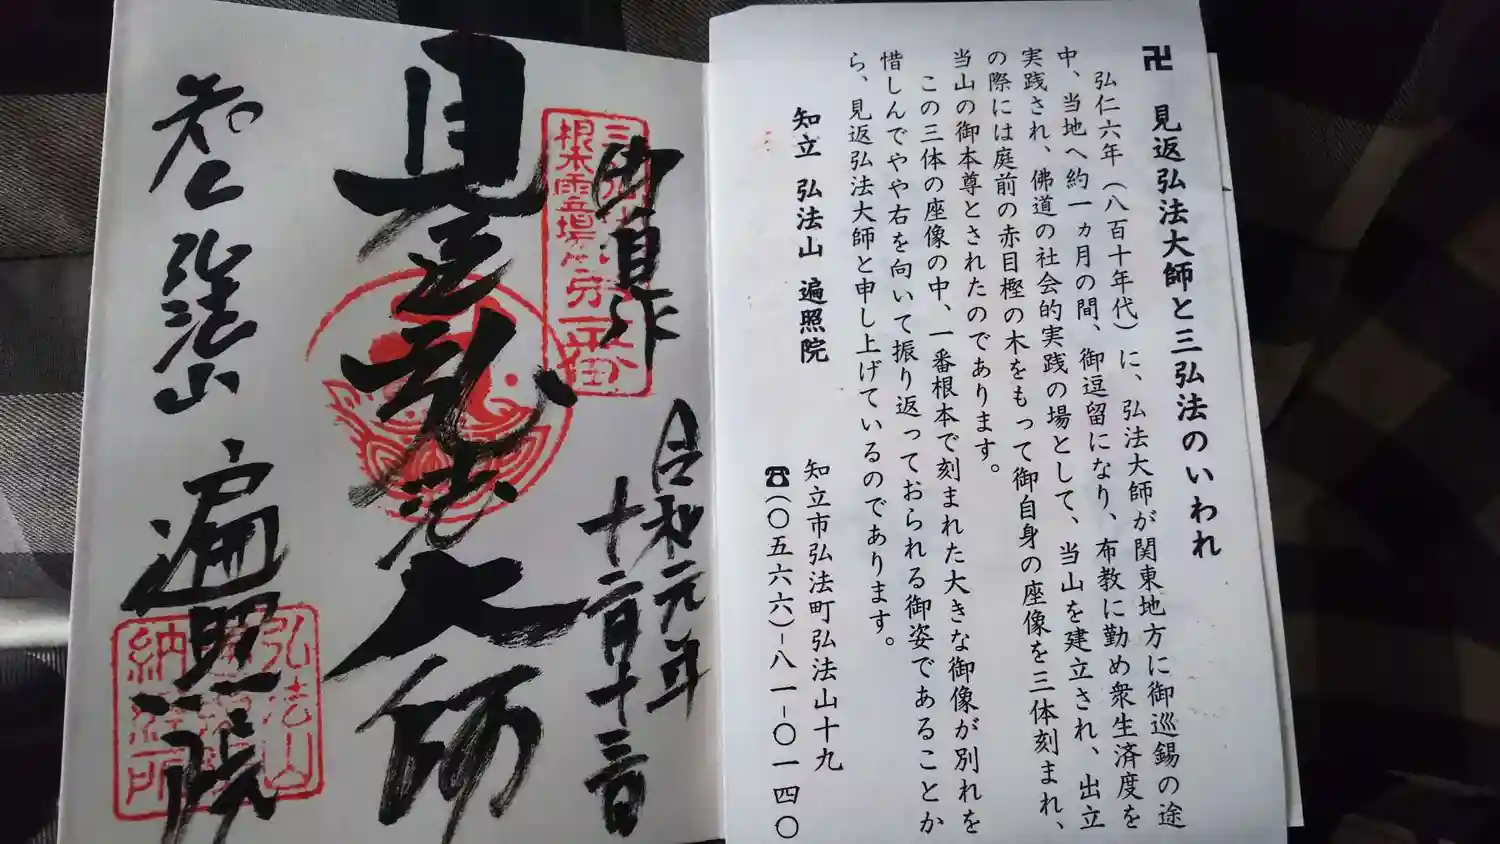 卍 見返弘法大師と三弘法のいわれ
弘仁六年（八百十年代）に、弘法大師が関東地方に御巡錫の途
中、当地へ約一ヵ月の間、御逗留になり、布教に勤め衆生済度を
実践され、佛道の社会的実践の場として、当山を建立され、出立
の際には庭前の赤目樫の木をもって御自身の座像を三体刻まれ、
当山の御本尊とされたのであります。
この三体の座像の中、一番根本で刻まれた大きな御像が別れを
惜しんでやや右を向いて振り返っておられる御姿であることか
ら、見返弘法大師と申し上げているのであります。
知立 弘法山 遍照院
知立市弘法町弘法山十九
☎（〇五六六）−八一−〇一四〇
御自作
令和元年
十二月十三日
根本霊場第一番
見返弘法大師
知立 弘法山 遍照院
弘法山
納経所